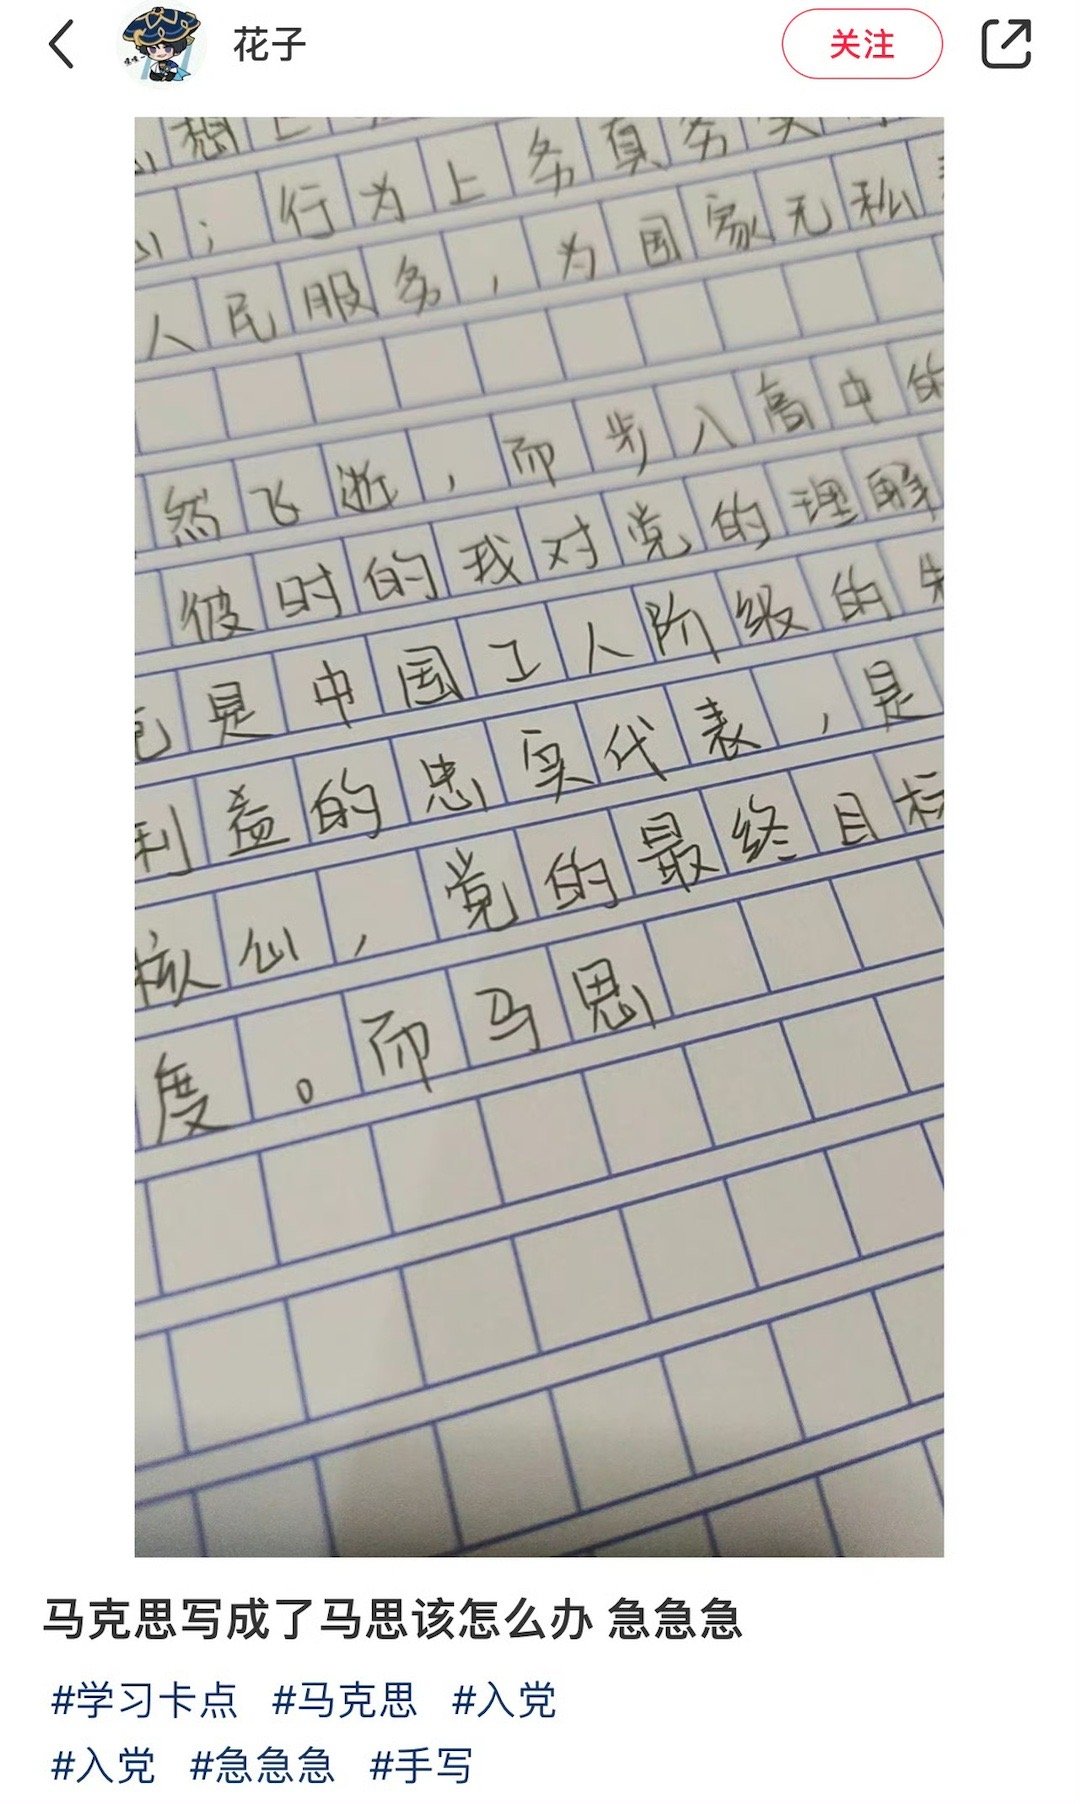 花子
关注
想上
心；行为上务真务实
人民服务，为国家无私
然飞逝，而步入高中的
彼时的我对党的理解
是中国工人阶级的先
利益的忠实代表，是
核心，党的最终目标
度。而马思
马克思写成了马思该怎么办 急急急
#学习卡点 #马克思 #入党
#入党 #急急急 #手写